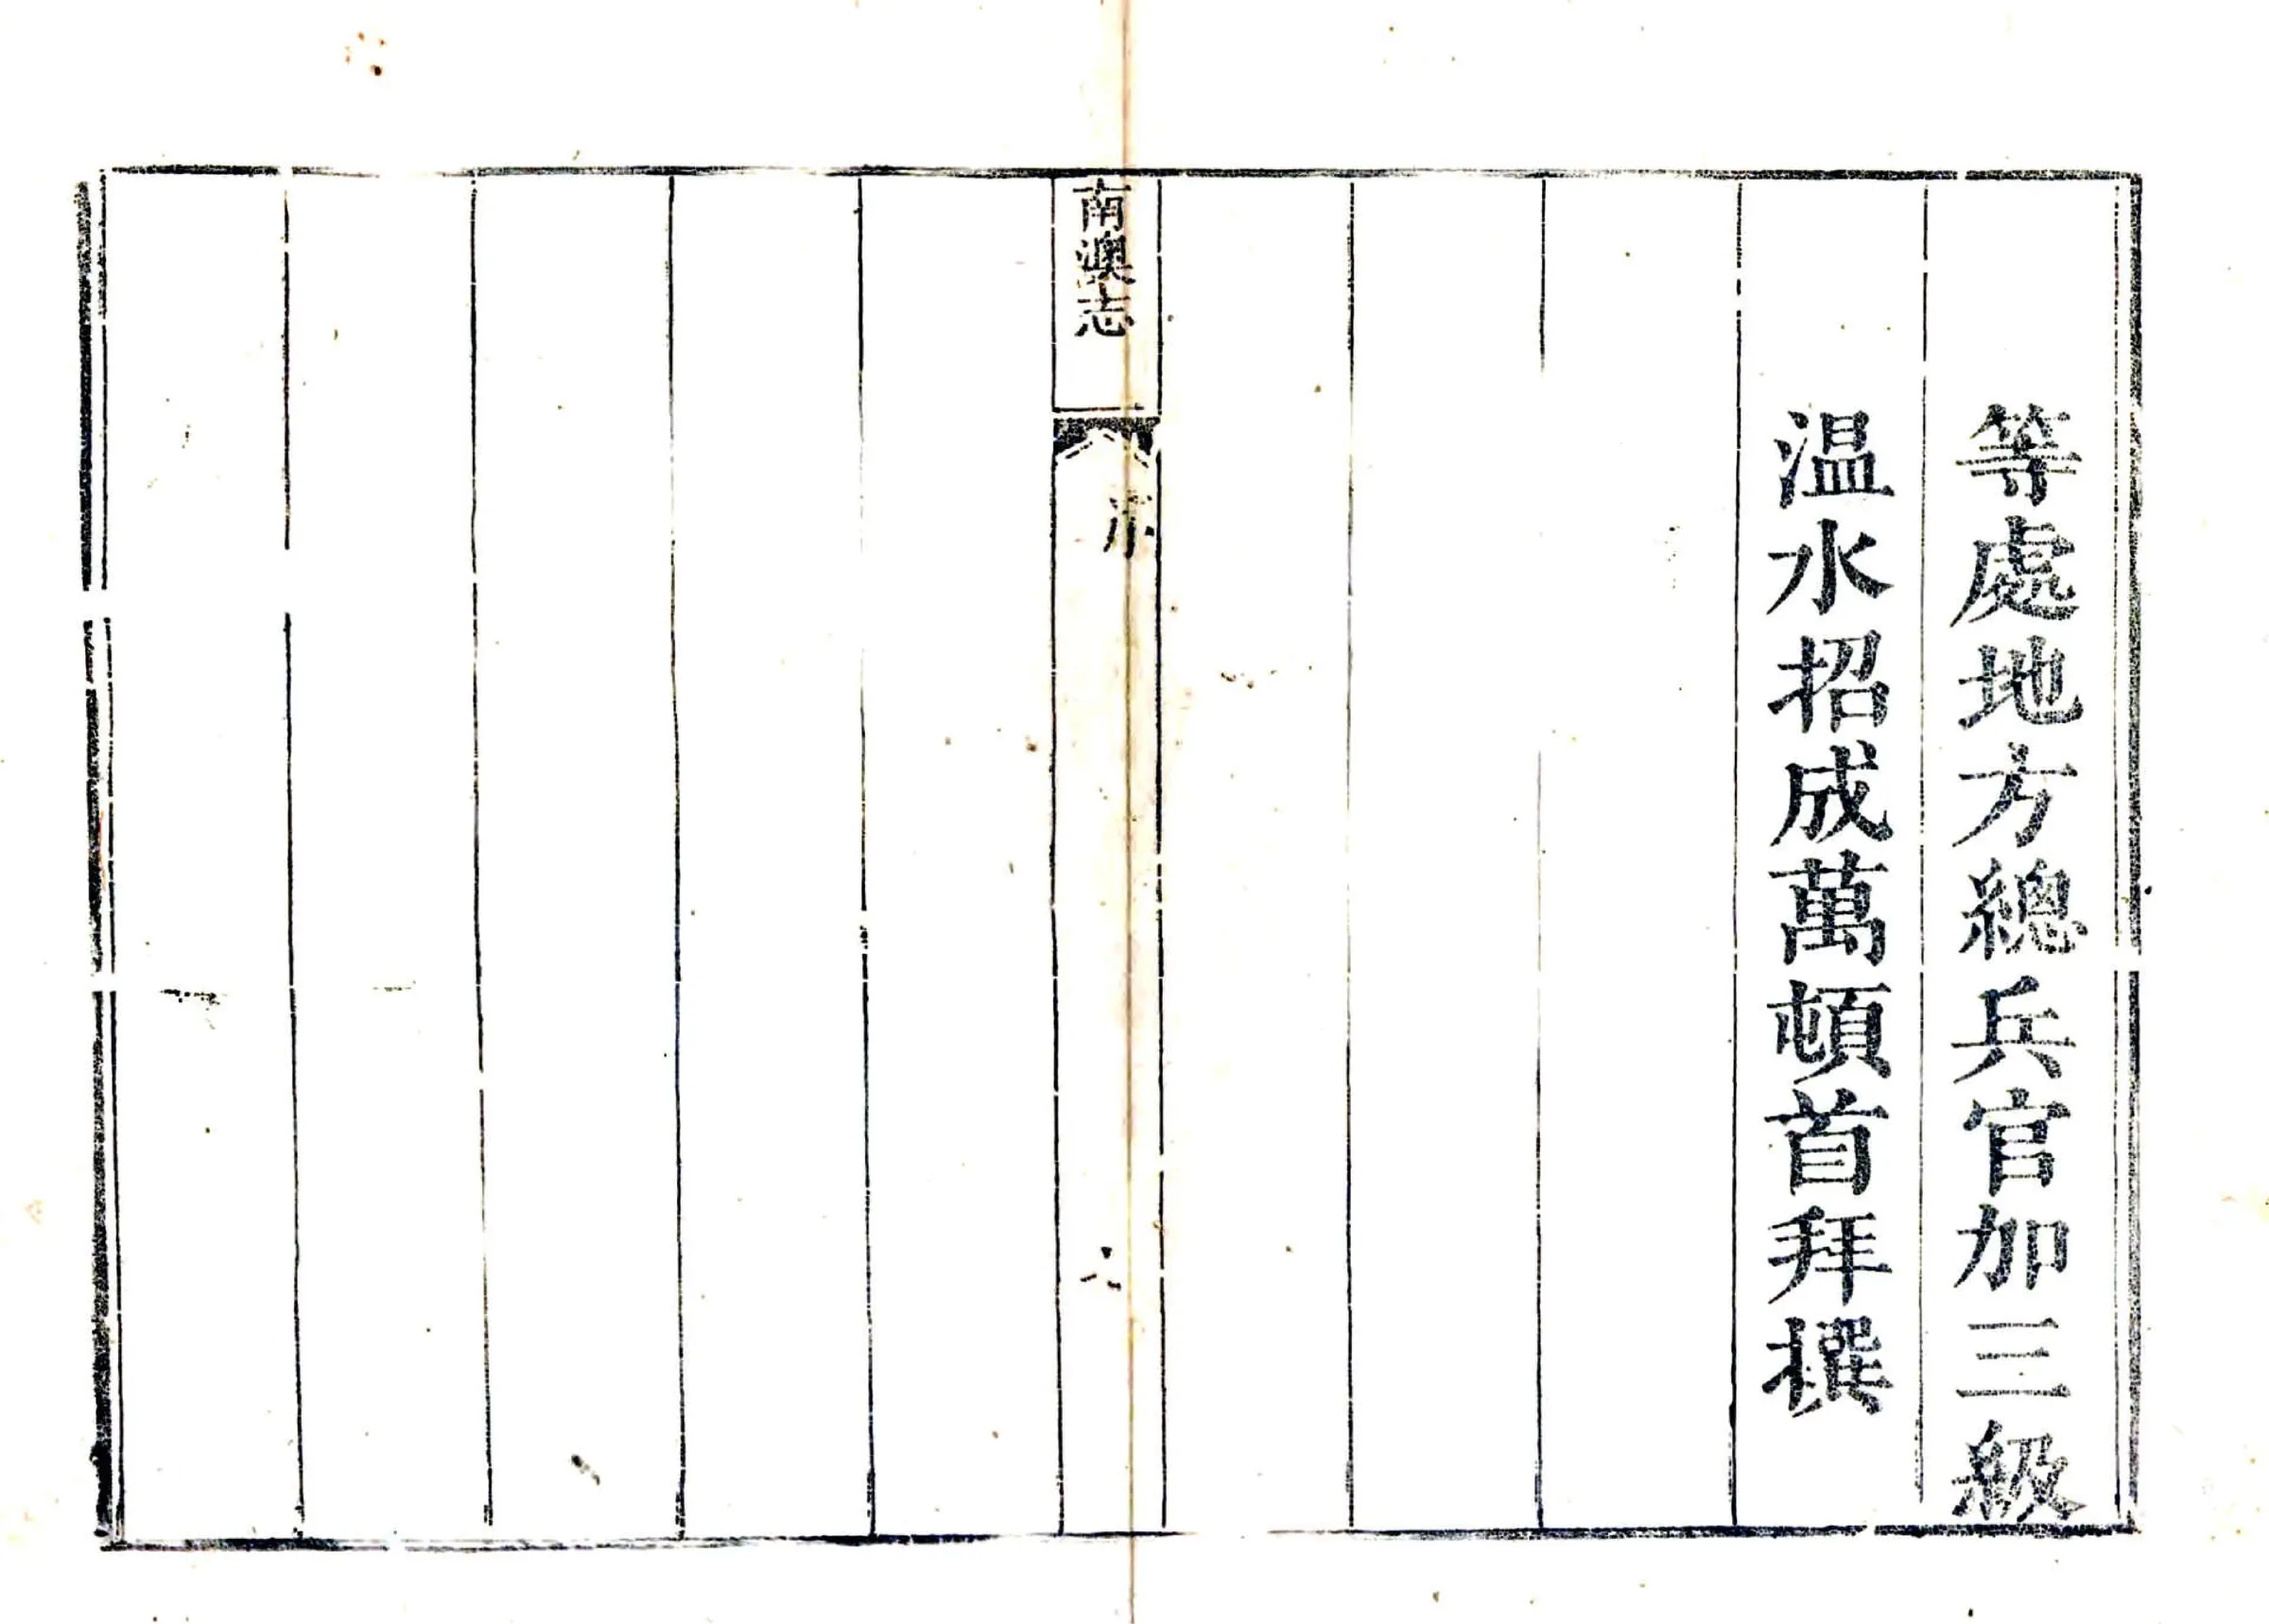 等處地方總兵官加三級
温水招成萬頓首拜撰
南澳志
序